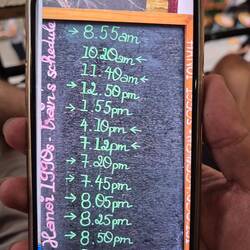 Hanoi 1990s - train's schedule
→ 8.55am
10.20am ←
11.40am ←
→ 12.50pm
→ 1.55pm
4.10pm ←
7.12pm ←
→ 7.20pm
→ 7.45pm
→ 8.05pm
→ 8.25pm
→ 8.50pm